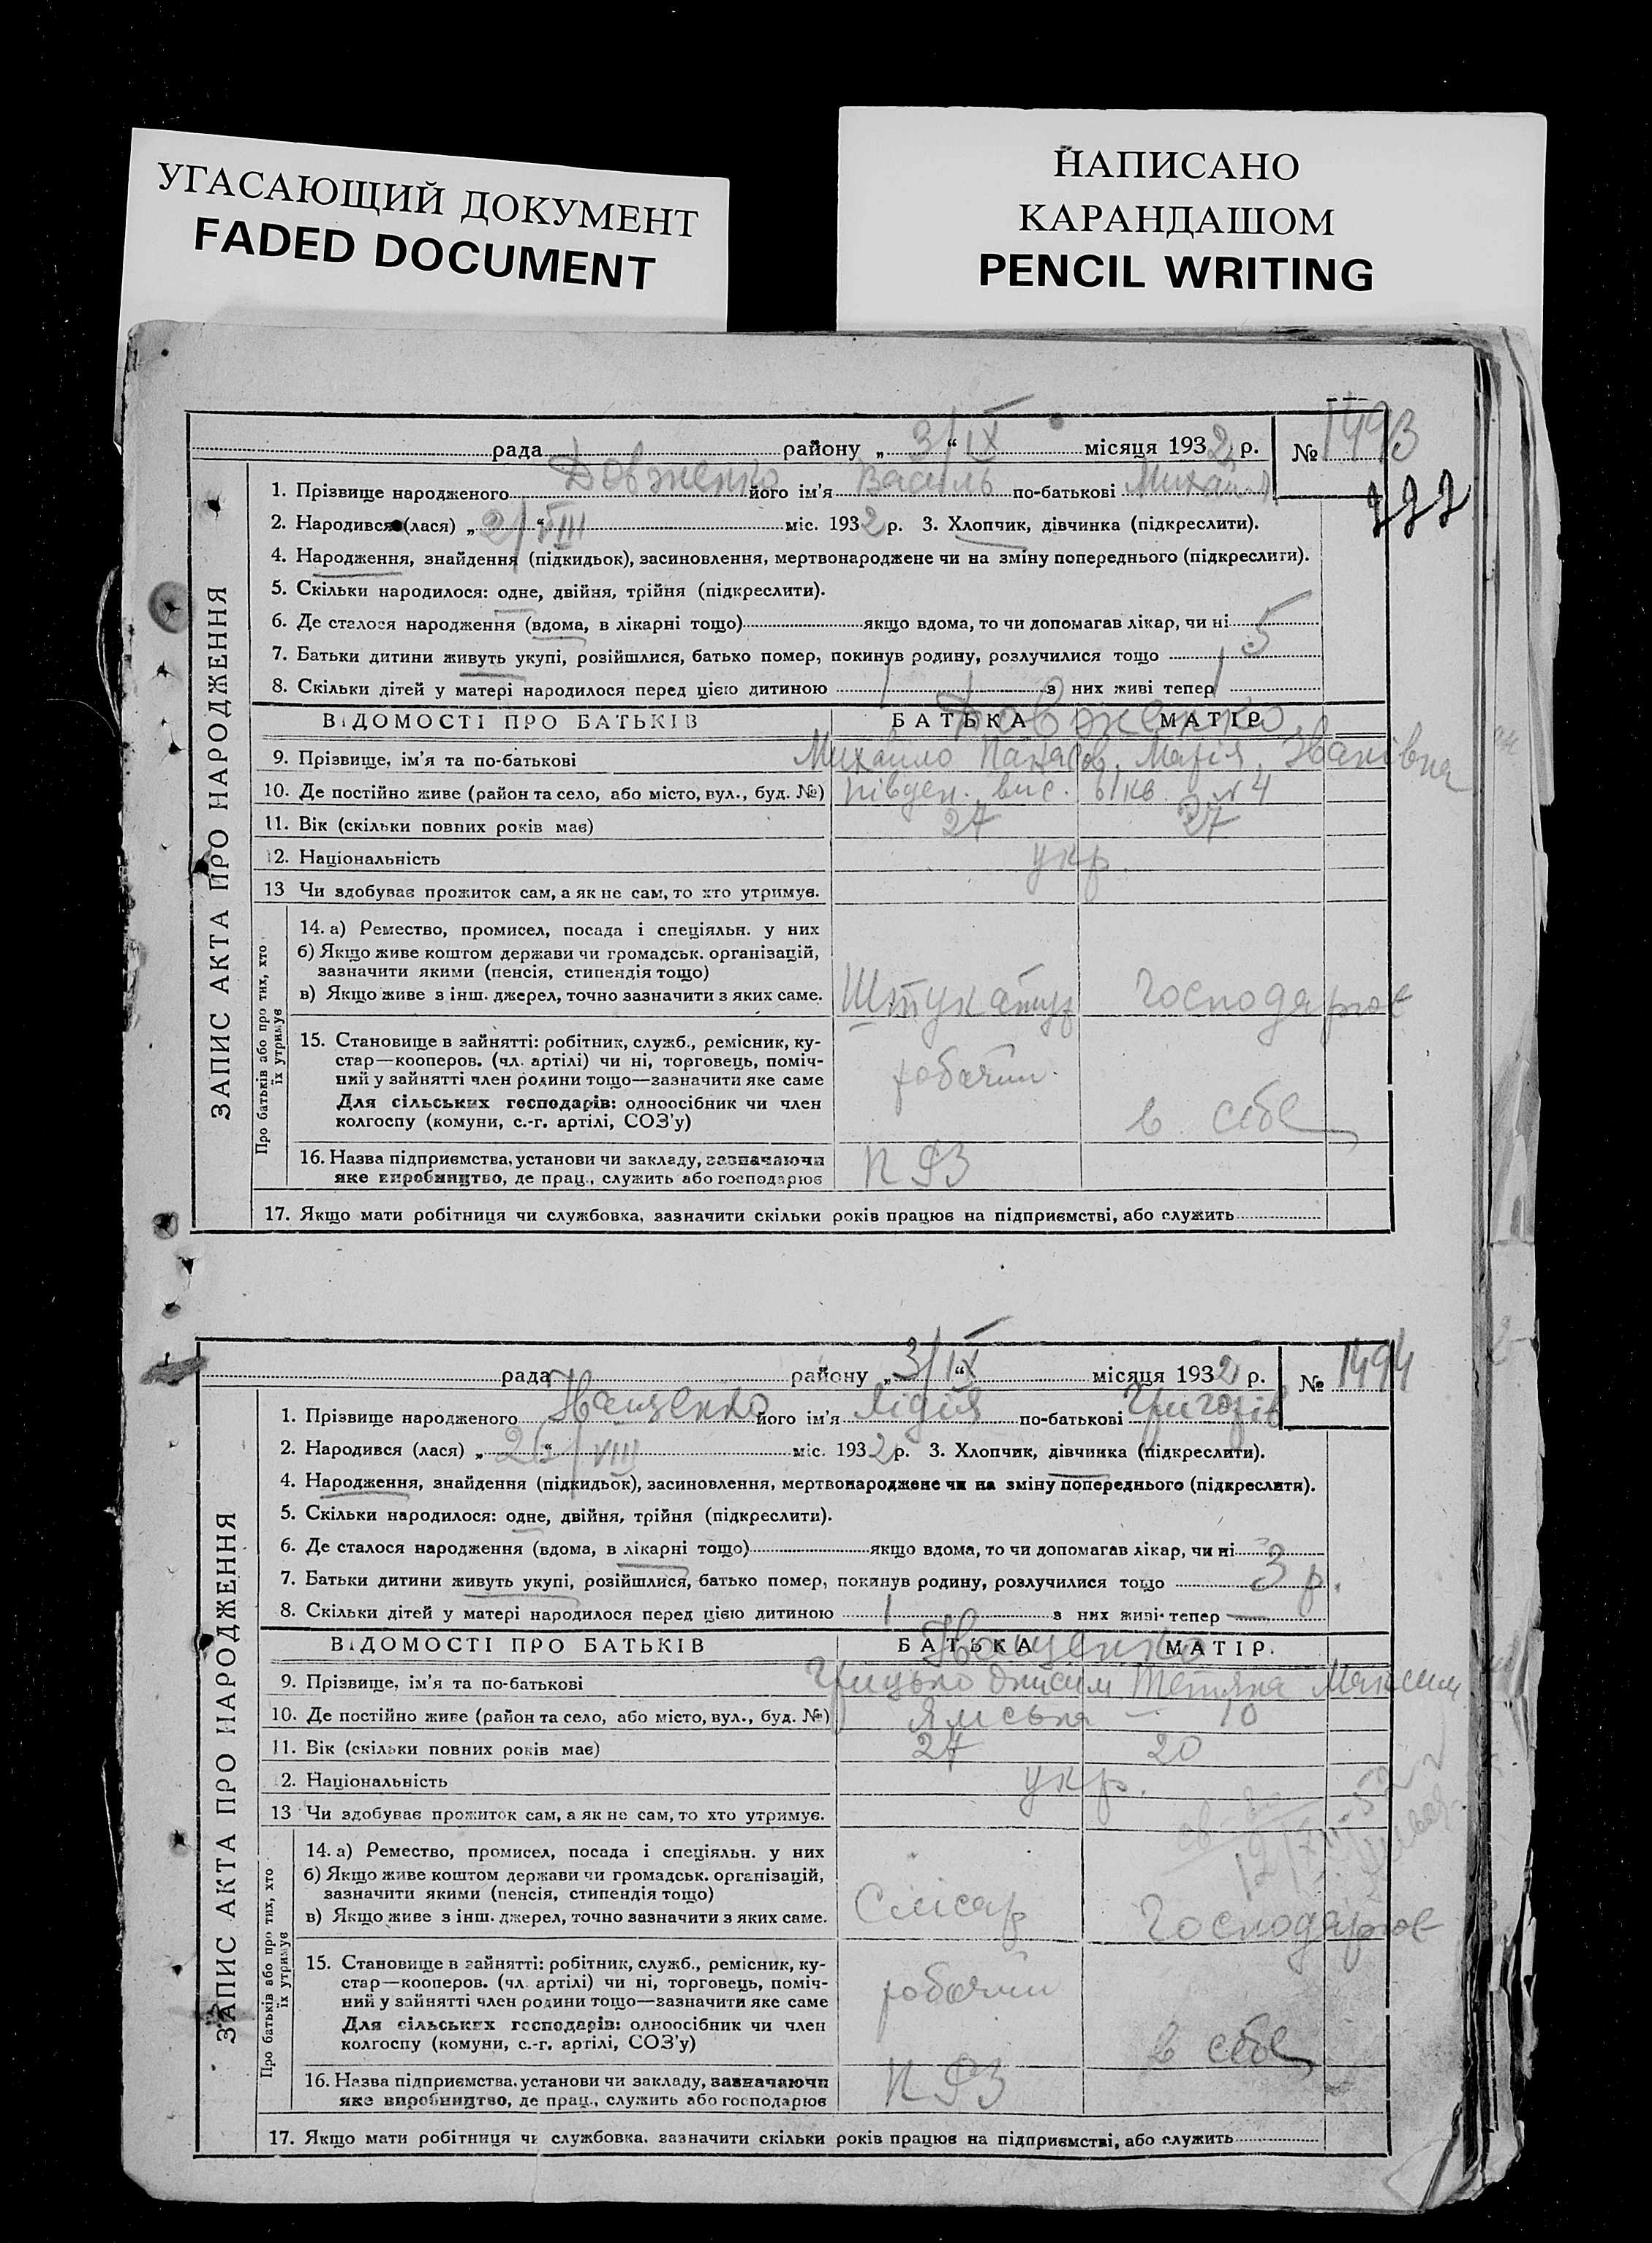 УГАСАЮЩИЙ ДОКУМЕНТ
FADED DOCUMENT
НАПИСАНО
КАРАНДАШОМ
PENCIL WRITING
ЗАПИС АКТА ПРО НАРОДЖЕННЯ
рада району „3/IX“ місяця 1932 р. № 1493
1. Прізвище народженого Довженко його ім'я Василь по-батькові Михайл
777
2. Народився (лася) „2/“ VIII міс. 1932 р. 3. Хлопчик, дівчинка (підкреслити).
4. Народження, знайдення (підкидьок), засиновлення, мертвонароджене чи на зміну попереднього (підкреслити).
5. Скільки народилося: одне, двійня, трійня (підкреслити).
6. Де сталося народження (вдома, в лікарні тощо) якщо вдома, то чи допомагав лікар, чи ні
7. Батьки дитини живуть укупі, розійшлися, батько помер, покинув родину, розлучилися тощо 5
8. Скільки дітей у матері народилося перед цією дитиною 1 з них живі тепер 1
ВІДОМОСТІ ПРО БАТЬКІВ БАТЬКА МАТІР
Довженко
9. Прізвище, ім'я та по-батькові Михайло Панасов. Марія Іванівна
10. Де постійно живе (район та село, або місто, вул., буд. №) Південн. вис. 61 кв. 4
11. Вік (скільки повних років має) 27 27
12. Національність укр.
13 Чи здобуває прожиток сам, а як не сам, то хто утримує.
Про батьків або про тих, хто їх утримує
14. а) Ремество, промисел, посада і спеціяльн. у них
б) Якщо живе коштом держави чи громадськ. організацій,
зазначити якими (пенсія, стипендія тощо)
в) Якщо живе з інш. джерел, точно зазначити з яких саме. Штукатур Господарює
15. Становище в зайнятті: робітник, служб., ремісник, ку-
стар—кооперов. (чл. артілі) чи ні, торговець, поміч-
ний у зайнятті член родини тощо—зазначити яке саме робочий
Для сільських господарів: одноосібник чи член
колгоспу (комуни, с.-г. артілі, СОЗ'у) в себе
16. Назва підприємства, установи чи закладу, зазначаючи
яке виробництво, де прац., служить або господарює
17. Якщо мати робітниця чи службовка, зазначити скільки років працює на підприємстві, або служить
ЗАПИС АКТА ПРО НАРОДЖЕННЯ
рада району „3/IX“ місяця 1932 р. № 1494
1. Прізвище народженого Іващенко його ім'я Лідія по-батькові Григорів
2. Народився (лася) „26“ VIII міс. 1932 р. 3. Хлопчик, дівчинка (підкреслити).
4. Народження, знайдення (підкидьок), засиновлення, мертвонароджене чи на зміну попереднього (підкреслити).
5. Скільки народилося: одне, двійня, трійня (підкреслити).
6. Де сталося народження (вдома, в лікарні тощо) якщо вдома, то чи допомагав лікар, чи ні
7. Батьки дитини живуть укупі, розійшлися, батько помер, покинув родину, розлучилися тощо 3 р.
8. Скільки дітей у матері народилося перед цією дитиною 1 з них живі тепер —
ВІДОМОСТІ ПРО БАТЬКІВ БАТЬКА МАТІР.
Іващенко
9. Прізвище, ім'я та по-батькові Грицько Онисим Тетяна Максим
10. Де постійно живе (район та село, або місто, вул., буд. №) Ямська — 10
11. Вік (скільки повних років має) 27 20
12. Національність укр.
13 Чи здобуває прожиток сам, а як не сам, то хто утримує.
Про батьків або про тих, хто їх утримує
14. а) Ремество, промисел, посада і спеціяльн. у них
б) Якщо живе коштом держави чи громадськ. організацій,
зазначити якими (пенсія, стипендія тощо)
в) Якщо живе з інш. джерел, точно зазначити з яких саме. Слісар Господарює
15. Становище в зайнятті: робітник, служб., ремісник, ку-
стар—кооперов. (чл. артілі) чи ні, торговець, поміч-
ний у зайнятті член родини тощо—зазначити яке саме робочий
Для сільських господарів: одноосібник чи член
колгоспу (комуни, с.-г. артілі, СОЗ'у) в себе
16. Назва підприємства, установи чи закладу, зазначаючи
яке виробництво, де прац., служить або господарює
17. Якщо мати робітниця чи службовка, зазначити скільки років працює на підприємстві, або служить